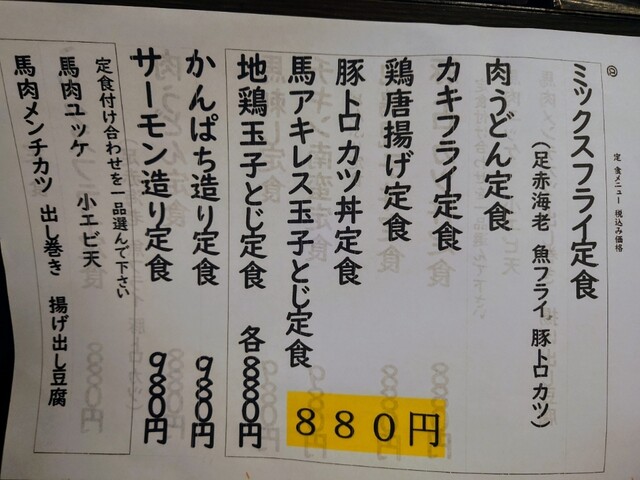 定食メニュー 税込み価格
ミックスフライ定食
(足赤海老 魚フライ 豚トロカツ)
肉うどん定食
カキフライ定食
鶏唐揚げ定食
豚トロカツ丼定食
馬アキレス玉子とじ定食
880円
地鶏玉子とじ定食 各880円
かんぱち造り定食 980円
サーモン造り定食 980円
定食付け合わせを一品選んで下さい
馬肉ユッケ 小エビ天
馬肉メンチカツ 出し巻き 揚げ出し豆腐